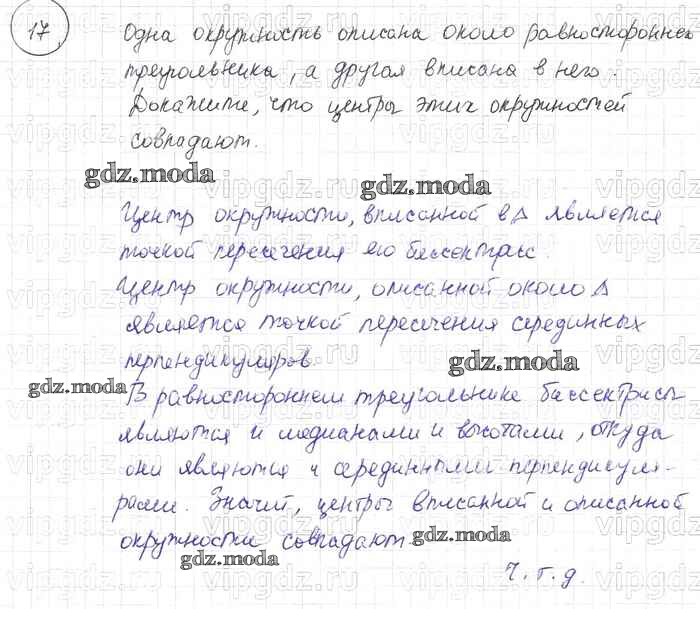 17.
Одна окружность описана около равностороннего
треугольника, а другая вписана в него.
Докажите, что центры этих окружностей
совпадают.
gdz.moda
gdz.moda
Центр окружности, вписанной в Δ является
точкой пересечения его биссектрис.
Центр окружности, описанной около Δ
является точкой пересечения серединных
перпендикуляров.
gdz.moda
gdz.moda
В равностороннем треугольнике биссектрисы
являются и медианами и высотами, откуда
они являются и серединными перпендикуля-
рами. Значит, центры вписанной и описанной
окружности совпадают.
gdz.moda
gdz.moda
Ч.т.д.
vipgdz.ru